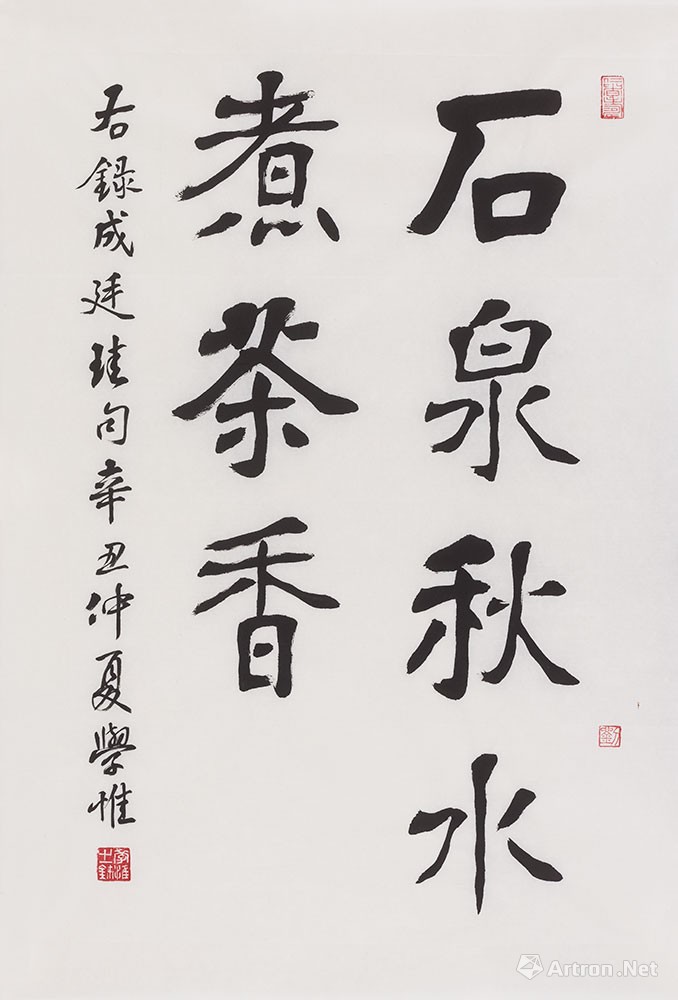 石泉秋水
煮茶香
右録成廷珪句辛丑仲夏學惟
Artron.Net